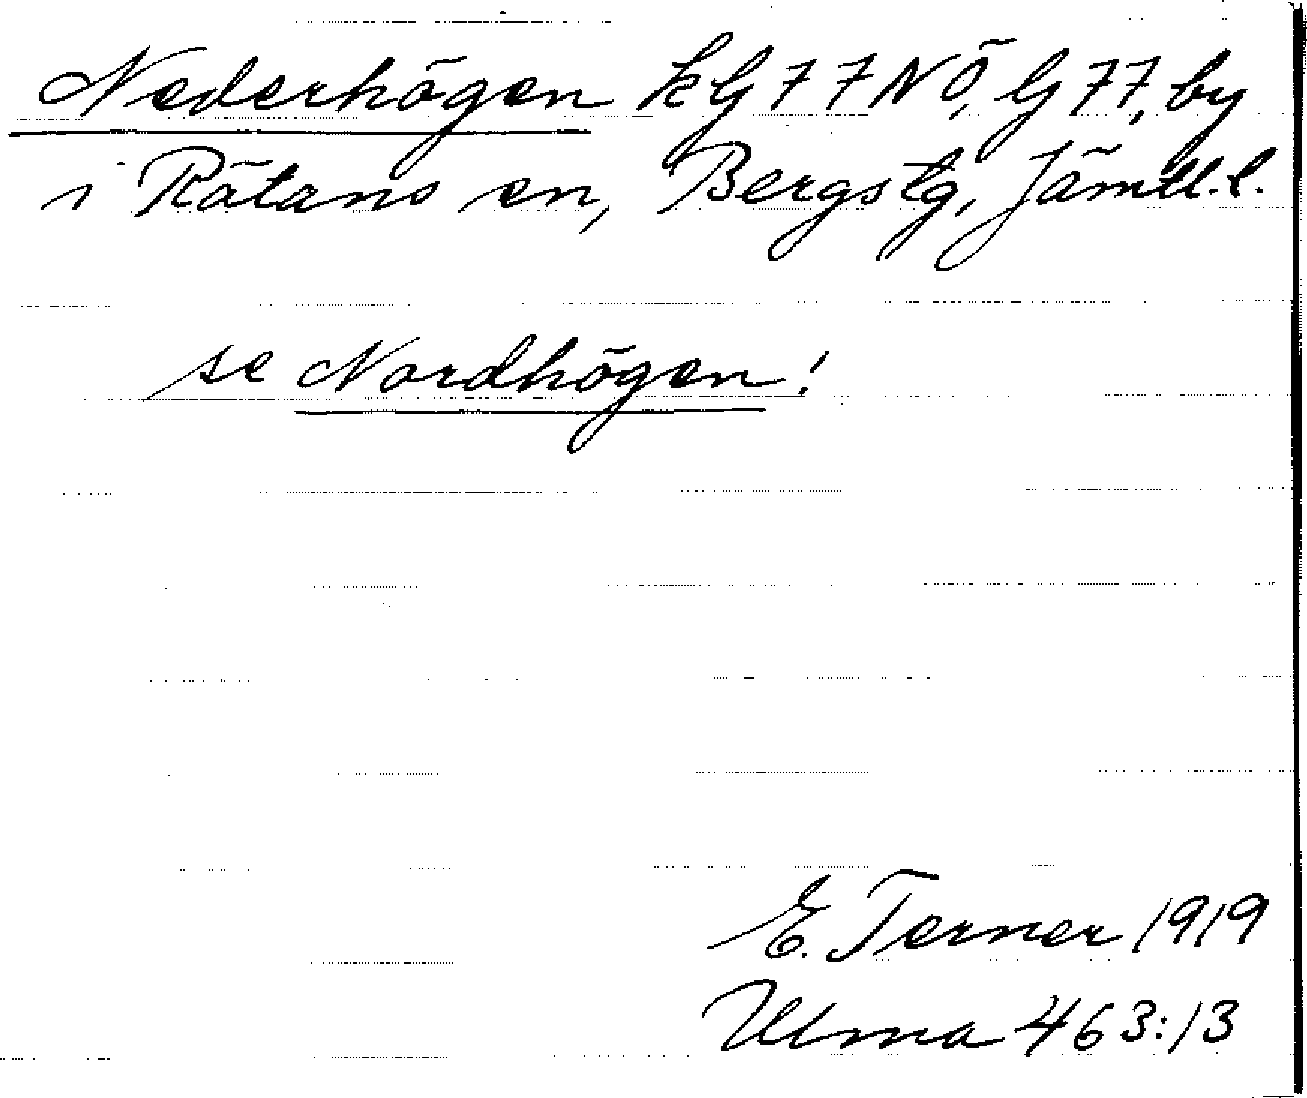 Nederhögen kG77NÖ, G77, by
i Rätans sn, Bergs tg, Jämtl. l.
se Nordhögen!
E. Terner 1919
Ulma 463:13